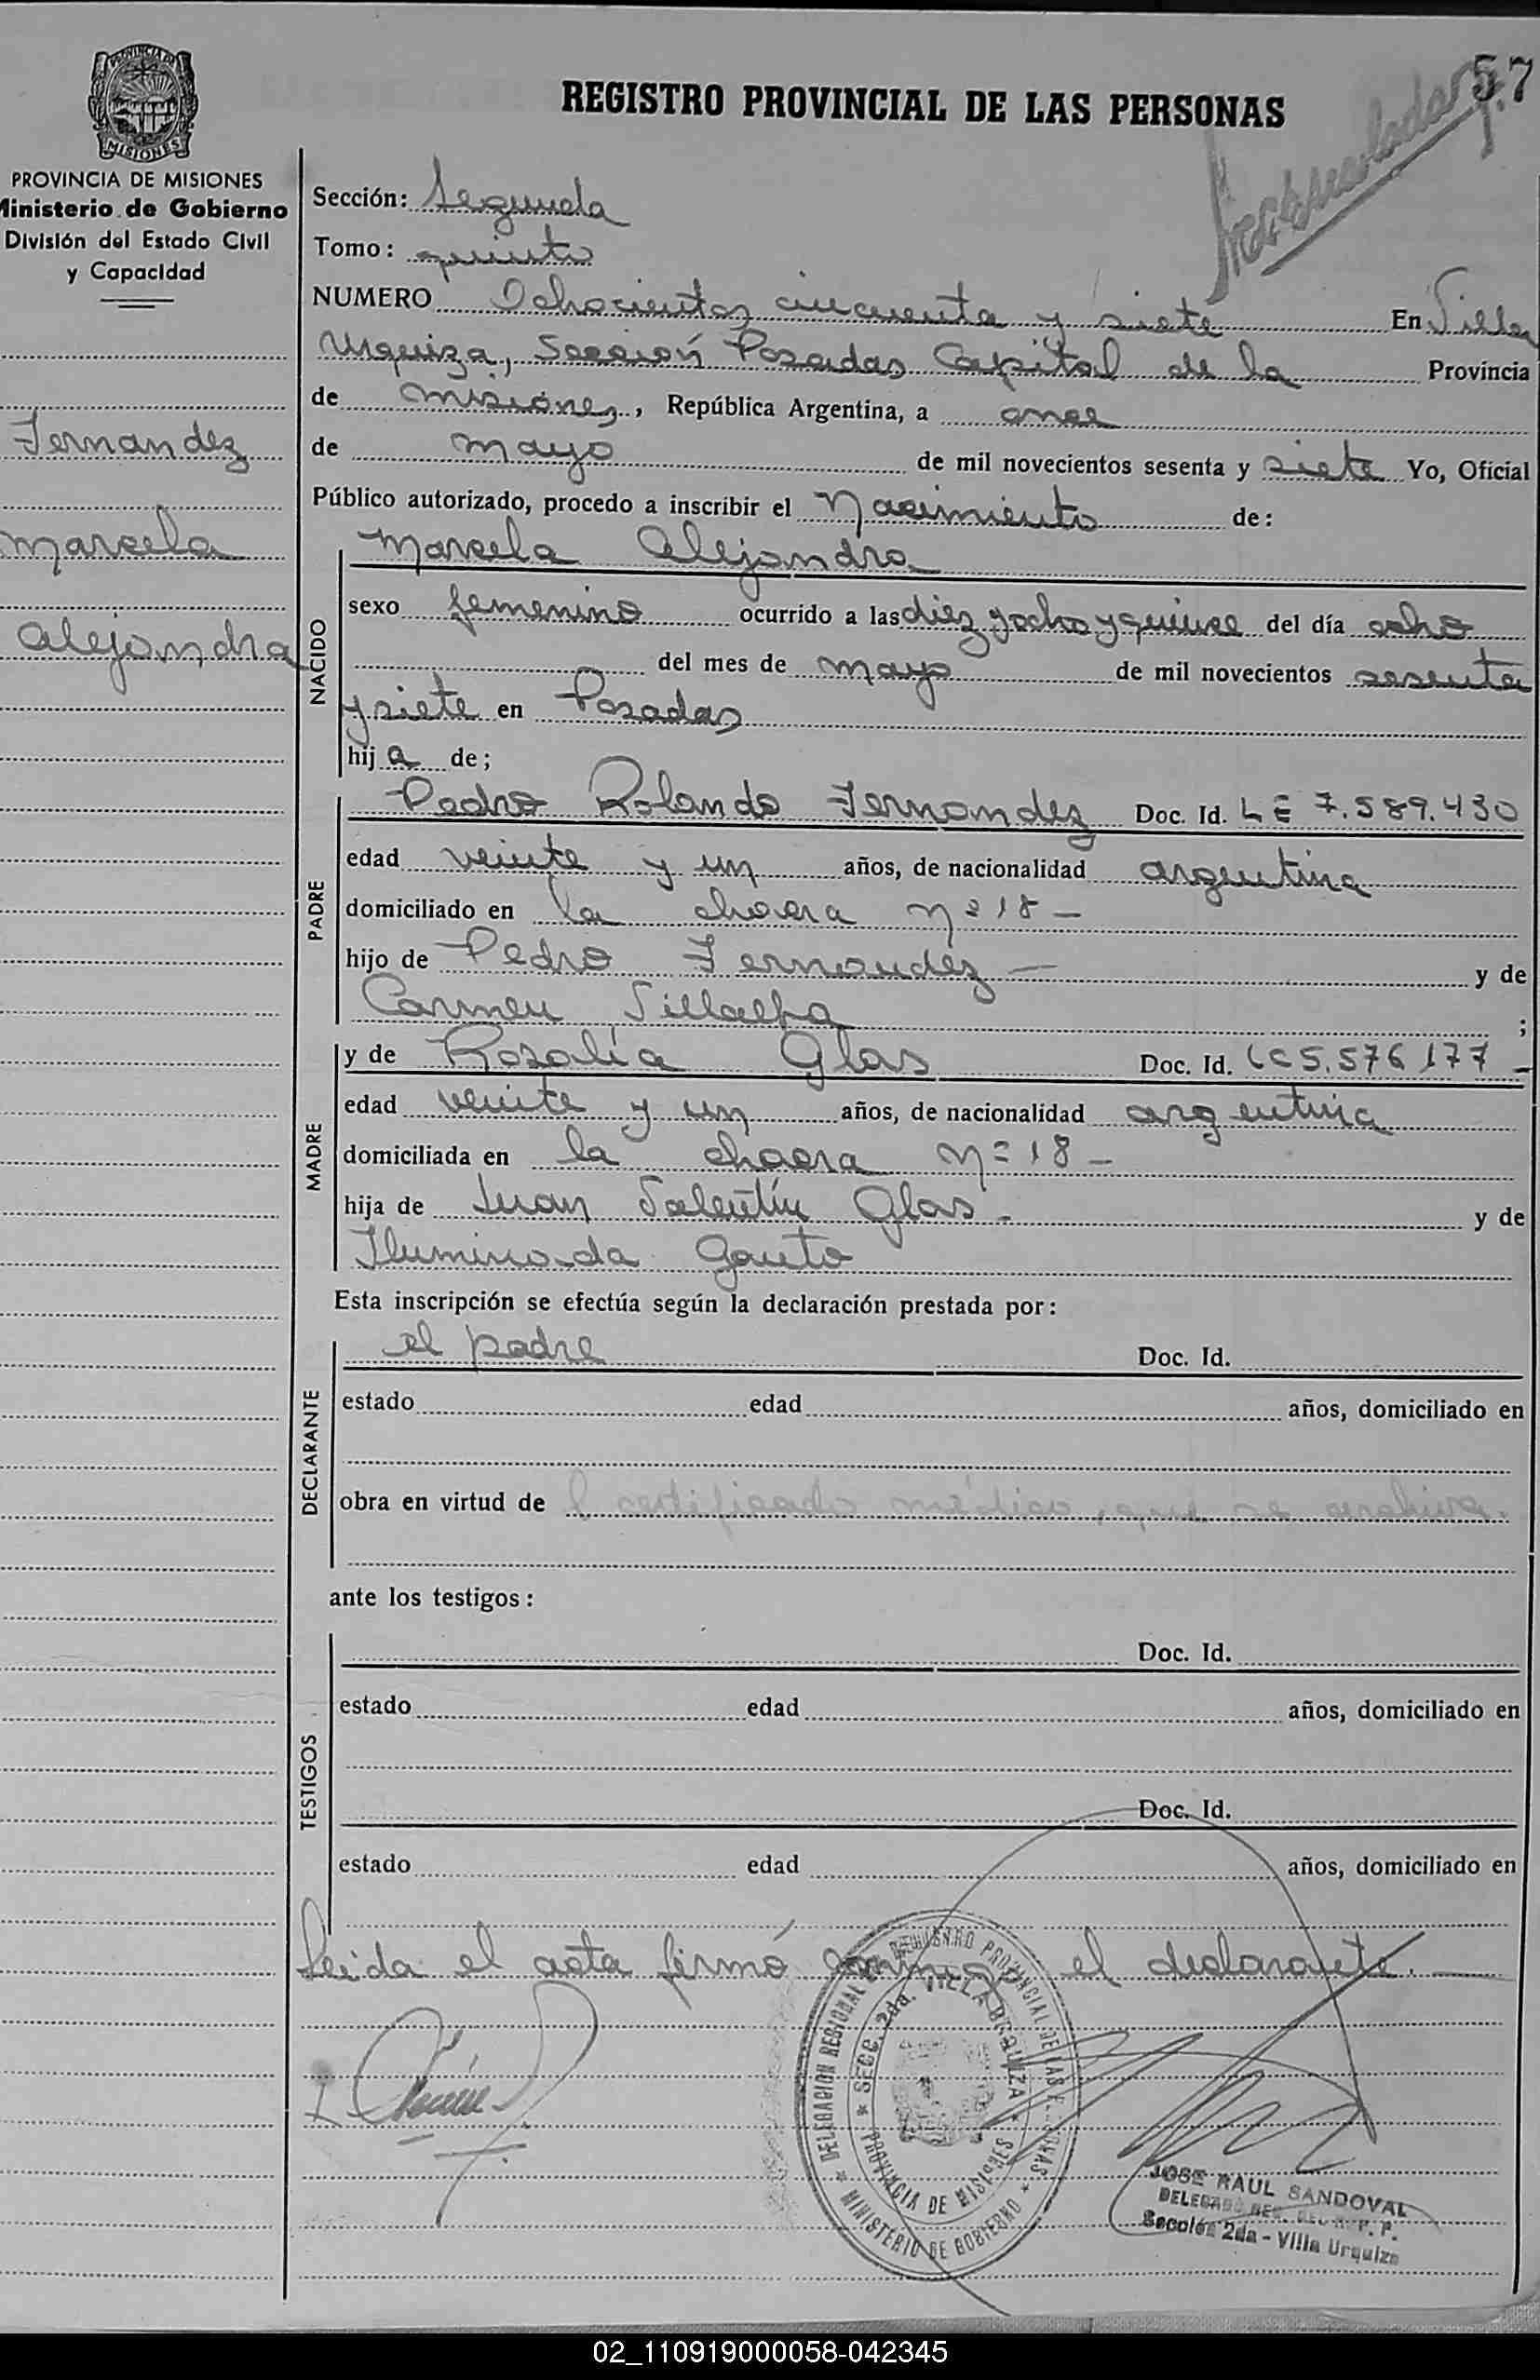 57
REGISTRO PROVINCIAL DE LAS PERSONAS
PROVINCIA DE MISIONES
Ministerio de Gobierno
División del Estado Civil
y Capacidad
Fernandez
Marcela
Alejandra
Sección: Segunda
Tomo: quinto
NUMERO Ochocientos cincuenta y siete En Villa
Urquiza, Sección Posadas Capital de la Provincia
de Misiones, República Argentina, a once
de mayo de mil novecientos sesenta y siete Yo, Oficial
Público autorizado, procedo a inscribir el Nacimiento de:
NACIDO
Marcela Alejandra
sexo femenino ocurrido a las diez y ocho y quince del día ocho
del mes de mayo de mil novecientos sesenta
y siete en Posadas
hija de;
PADRE
Pedro Rolando Fernandez Doc. Id. LE 7.589.430
edad veinte y un años, de nacionalidad argentina
domiciliado en la chacra nº 18 —
hijo de Pedro Fernandez — y de
Carmen Villalba ;
MADRE
y de Rosalía Glas Doc. Id. LC 5.576177 —
edad veinte y un años, de nacionalidad argentina
domiciliada en la chacra nº 18 —
hija de Juan Valentín Glas - y de
Iluminada Gauto
Esta inscripción se efectúa según la declaración prestada por:
DECLARANTE
el padre Doc. Id.
estado edad años, domiciliado en
obra en virtud de l certificado médico, que se archiva.
ante los testigos:
TESTIGOS
Doc. Id.
estado edad años, domiciliado en
Doc. Id.
estado edad años, domiciliado en
Leida el acta firmó conmigo el declarante. —
DELEGACION REGIONAL REGISTRO PROVINCIAL DE LAS PERSONAS
* MINISTERIO DE GOBIERNO *
* SECC. 2da. VILLA URQUIZA *
PROVINCIA DE MISIONES
JOSE RAUL SANDOVAL
DELEGADO
Sección 2da - Villa Urquiza
02_110919000058-042345